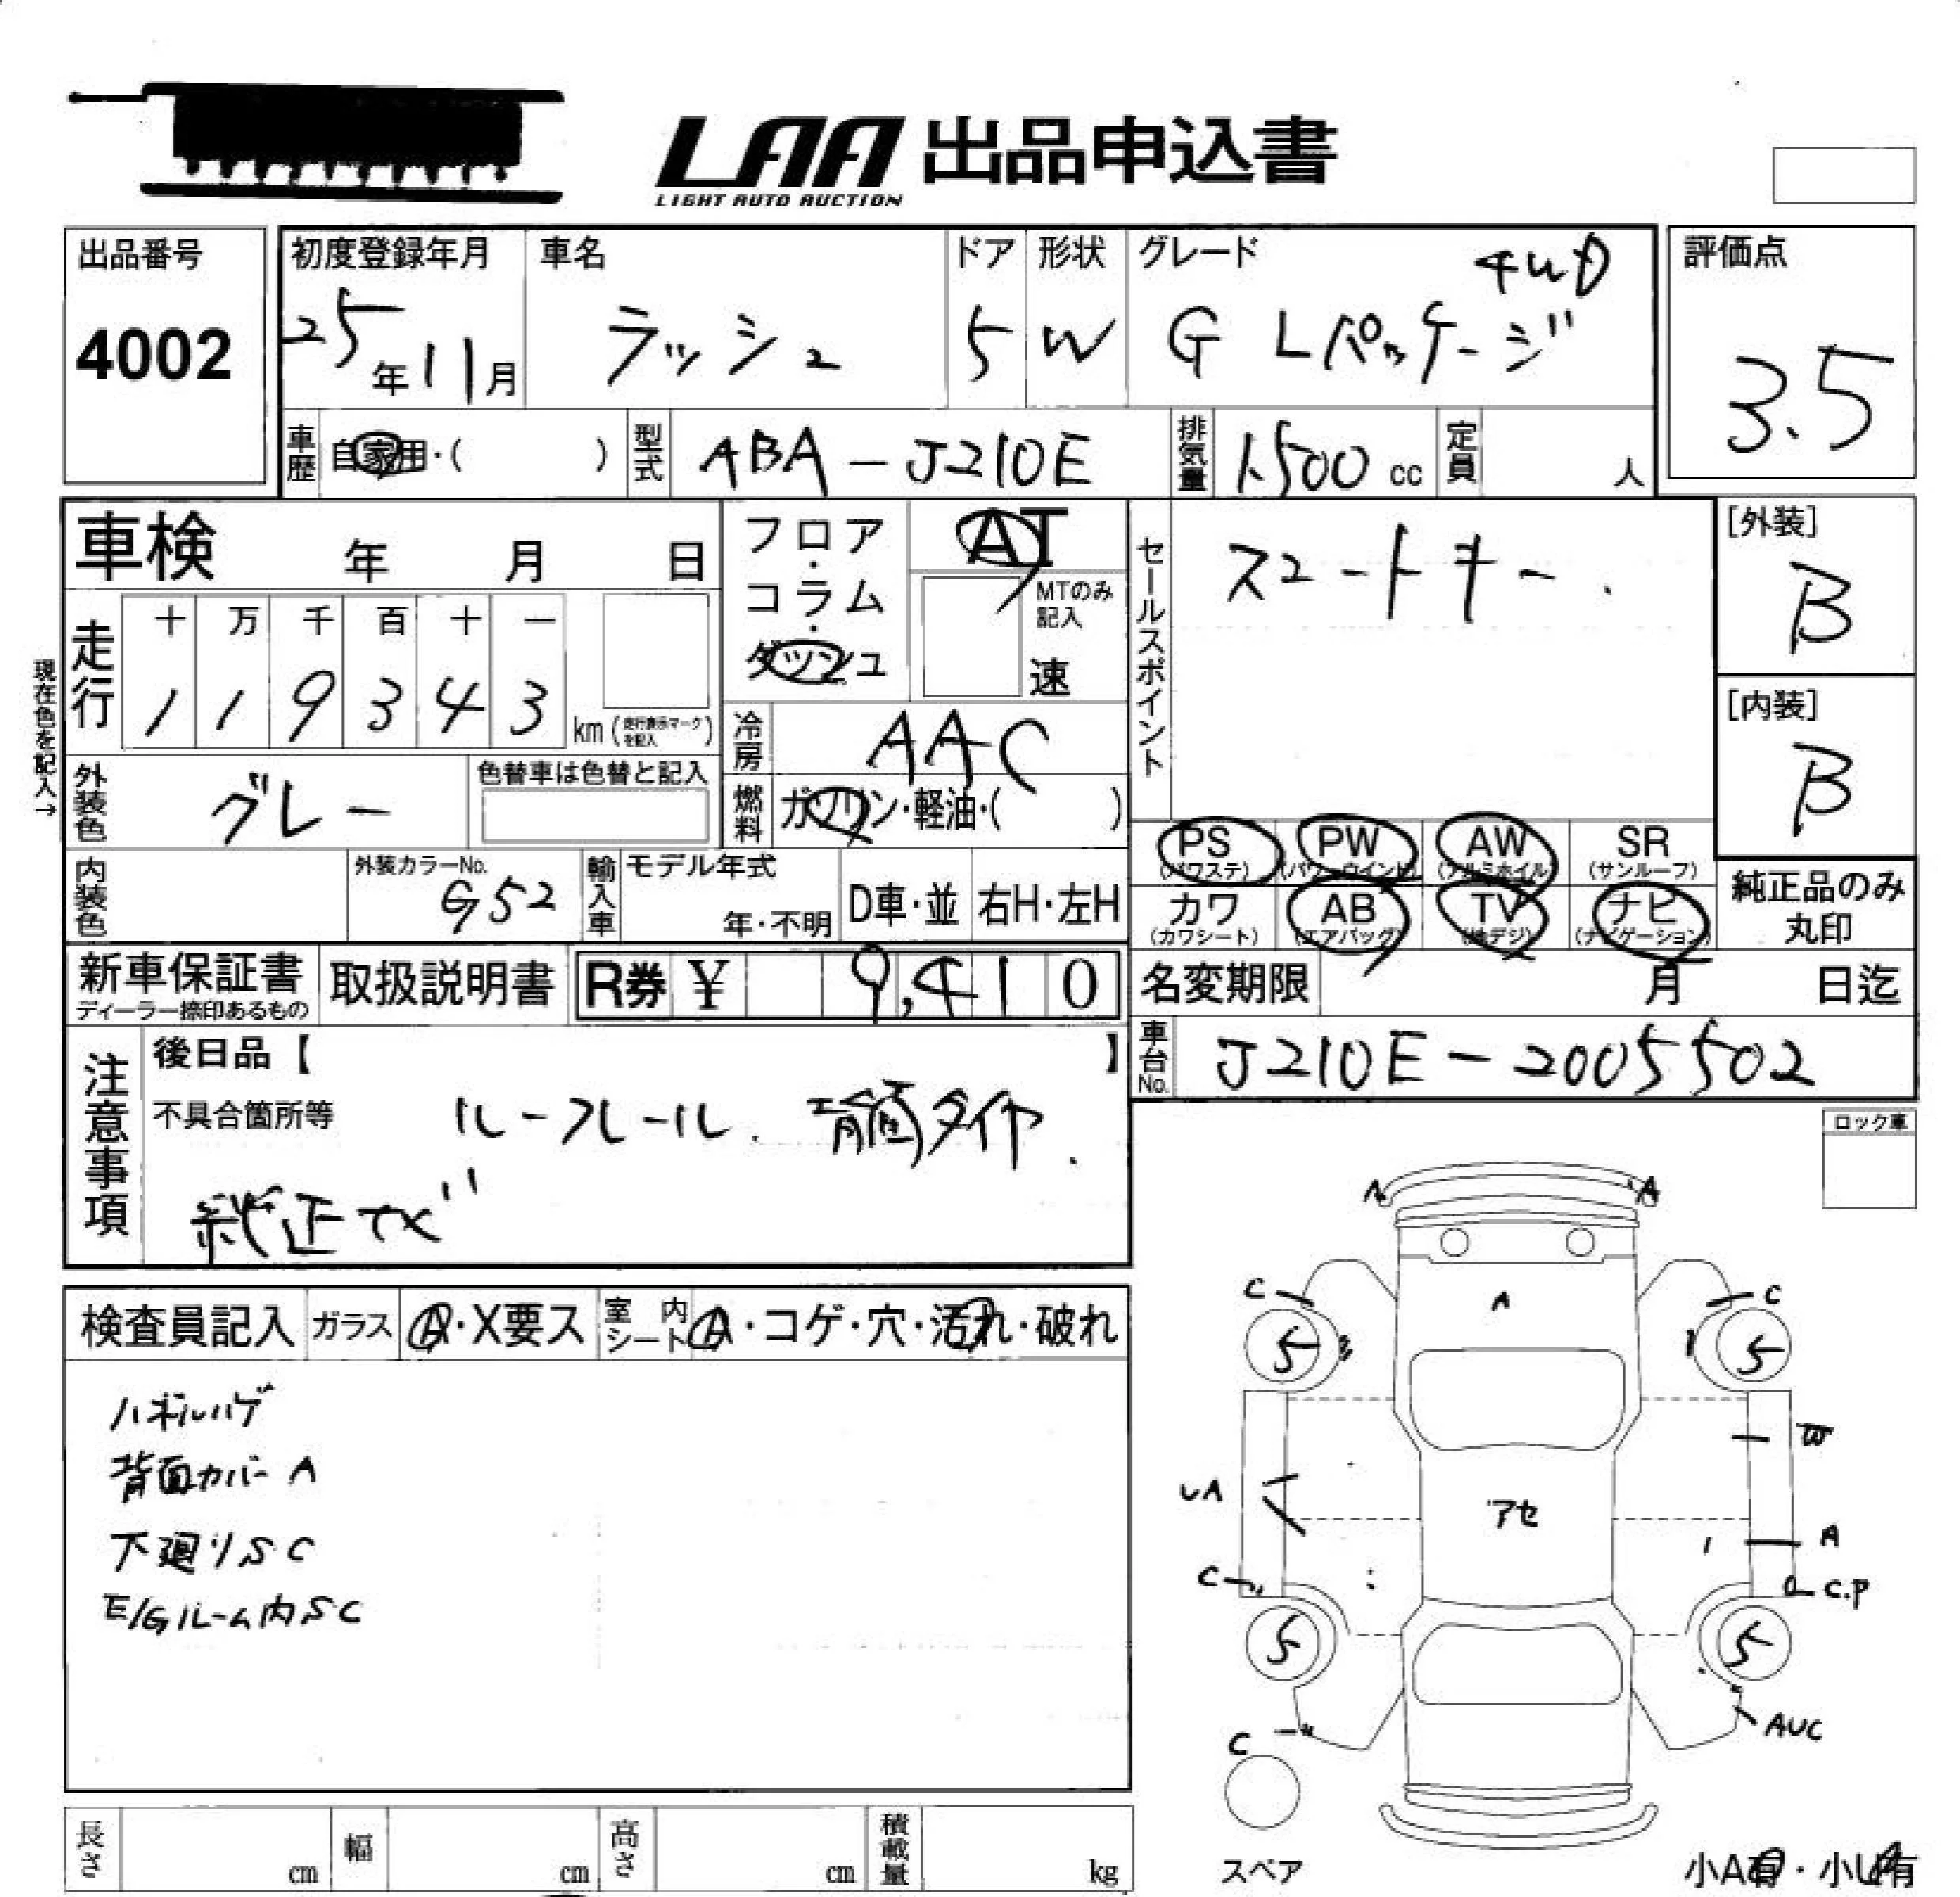 LAA 出品申込書
LIGHT AUTO AUCTION
出品番号
4002
初度登録年月
25年11月
車名
ラッシュ
ドア
5
形状
W
グレード
4WD
G Lパッケージ
評価点
3.5
車歴
自家用・( )
型式
ABA-J210E
排気量
1,500 cc
定員
人
車検 年 月 日
フロア・コラム・ダッシュ
AT
MTのみ記入
速
セールスポイント
スマートキー.
[外装]
B
[内装]
B
現在色を記入→
走行
十 万 千 百 十 一
1 1 9 3 4 3 km (走行表示マークを記入)
冷房
AAC
燃料
ガソリン・軽油・( )
外装色
グレー
色替車は色替と記入
内装色
外装カラーNo.
G52
輸入車
モデル年式
年・不明
D車・並
右H・左H
PS (パワステ)
PW (パワーウインド)
AW (アルミホイル)
SR (サンルーフ)
カワ (カワシート)
AB (エアバッグ)
TV (地デジ)
ナビ (ナビゲーション)
純正品のみ丸印
新車保証書
ディーラー捺印あるもの
取扱説明書
R券 ¥ 9,410
名変期限 月 日迄
車台No.
J210E-2005502
注意事項
後日品【 】
不具合箇所等
ルーフレール. 背面タイヤ.
純正ナビ
ロック車
検査員記入
ガラス
A・X要ス
室内シート
A・コゲ・穴・汚れ・破れ
ハンドルハゲ
背面カバーA
下廻りSC
E/Gルーム内SC
A
A
C
A
C
5
5
W
UA
アセ
A
C
C.P
5
5
AUC
C
スペア
長さ cm
幅 cm
高さ cm
積載量 kg
小A有・小U有